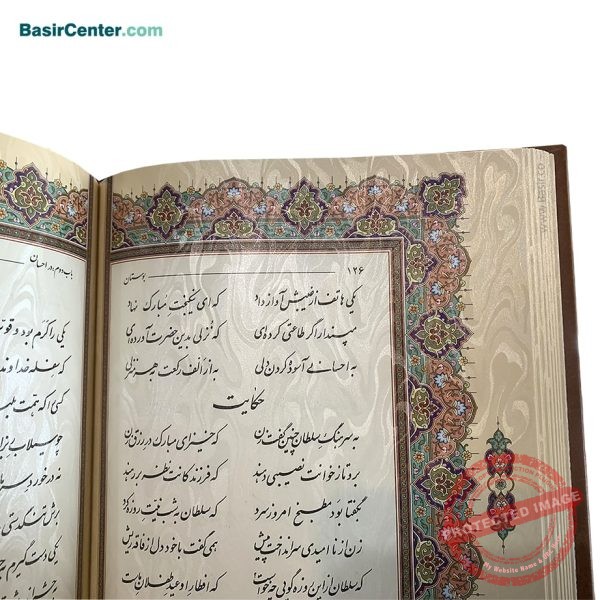 BasirCenter.com
www.Basir.co
۱۲۶ بوستان
یکی هاتف از غیبش آواز داد که ای نیکبخت مبارک نهاد
مپندار اگر طاعتی کرده‌ای که نزلی بدین حضرت آورده‌ای
به احسانی آسوده کردن دلی به از الف رکعت به هر منزلی
حکایت
به سرهنگ سلطان چنین گفت زن که خیز ای مبارک در رزق زن
برو تا ز خوانت نصیبی دهند که فرزندکانت نظر بر رهند
بگفتا بود مطبخ امروز سرد که سلطان به شب نیت روزه کرد
زن از ناامیدی سر انداخت پیش همی گفت با خود دل از فاقه ریش
که سلطان از این روزه گویی چه خواست که افطار او عید طفلان ماست
باب دوم در احسان
یکی را کرم بود و قوت
که سفله خداوند
کسی را که همت بلند
چو سیلاب
نه در خورد
برش تنگدستی
یکی دست گیرم
PROTECTED IMAGE